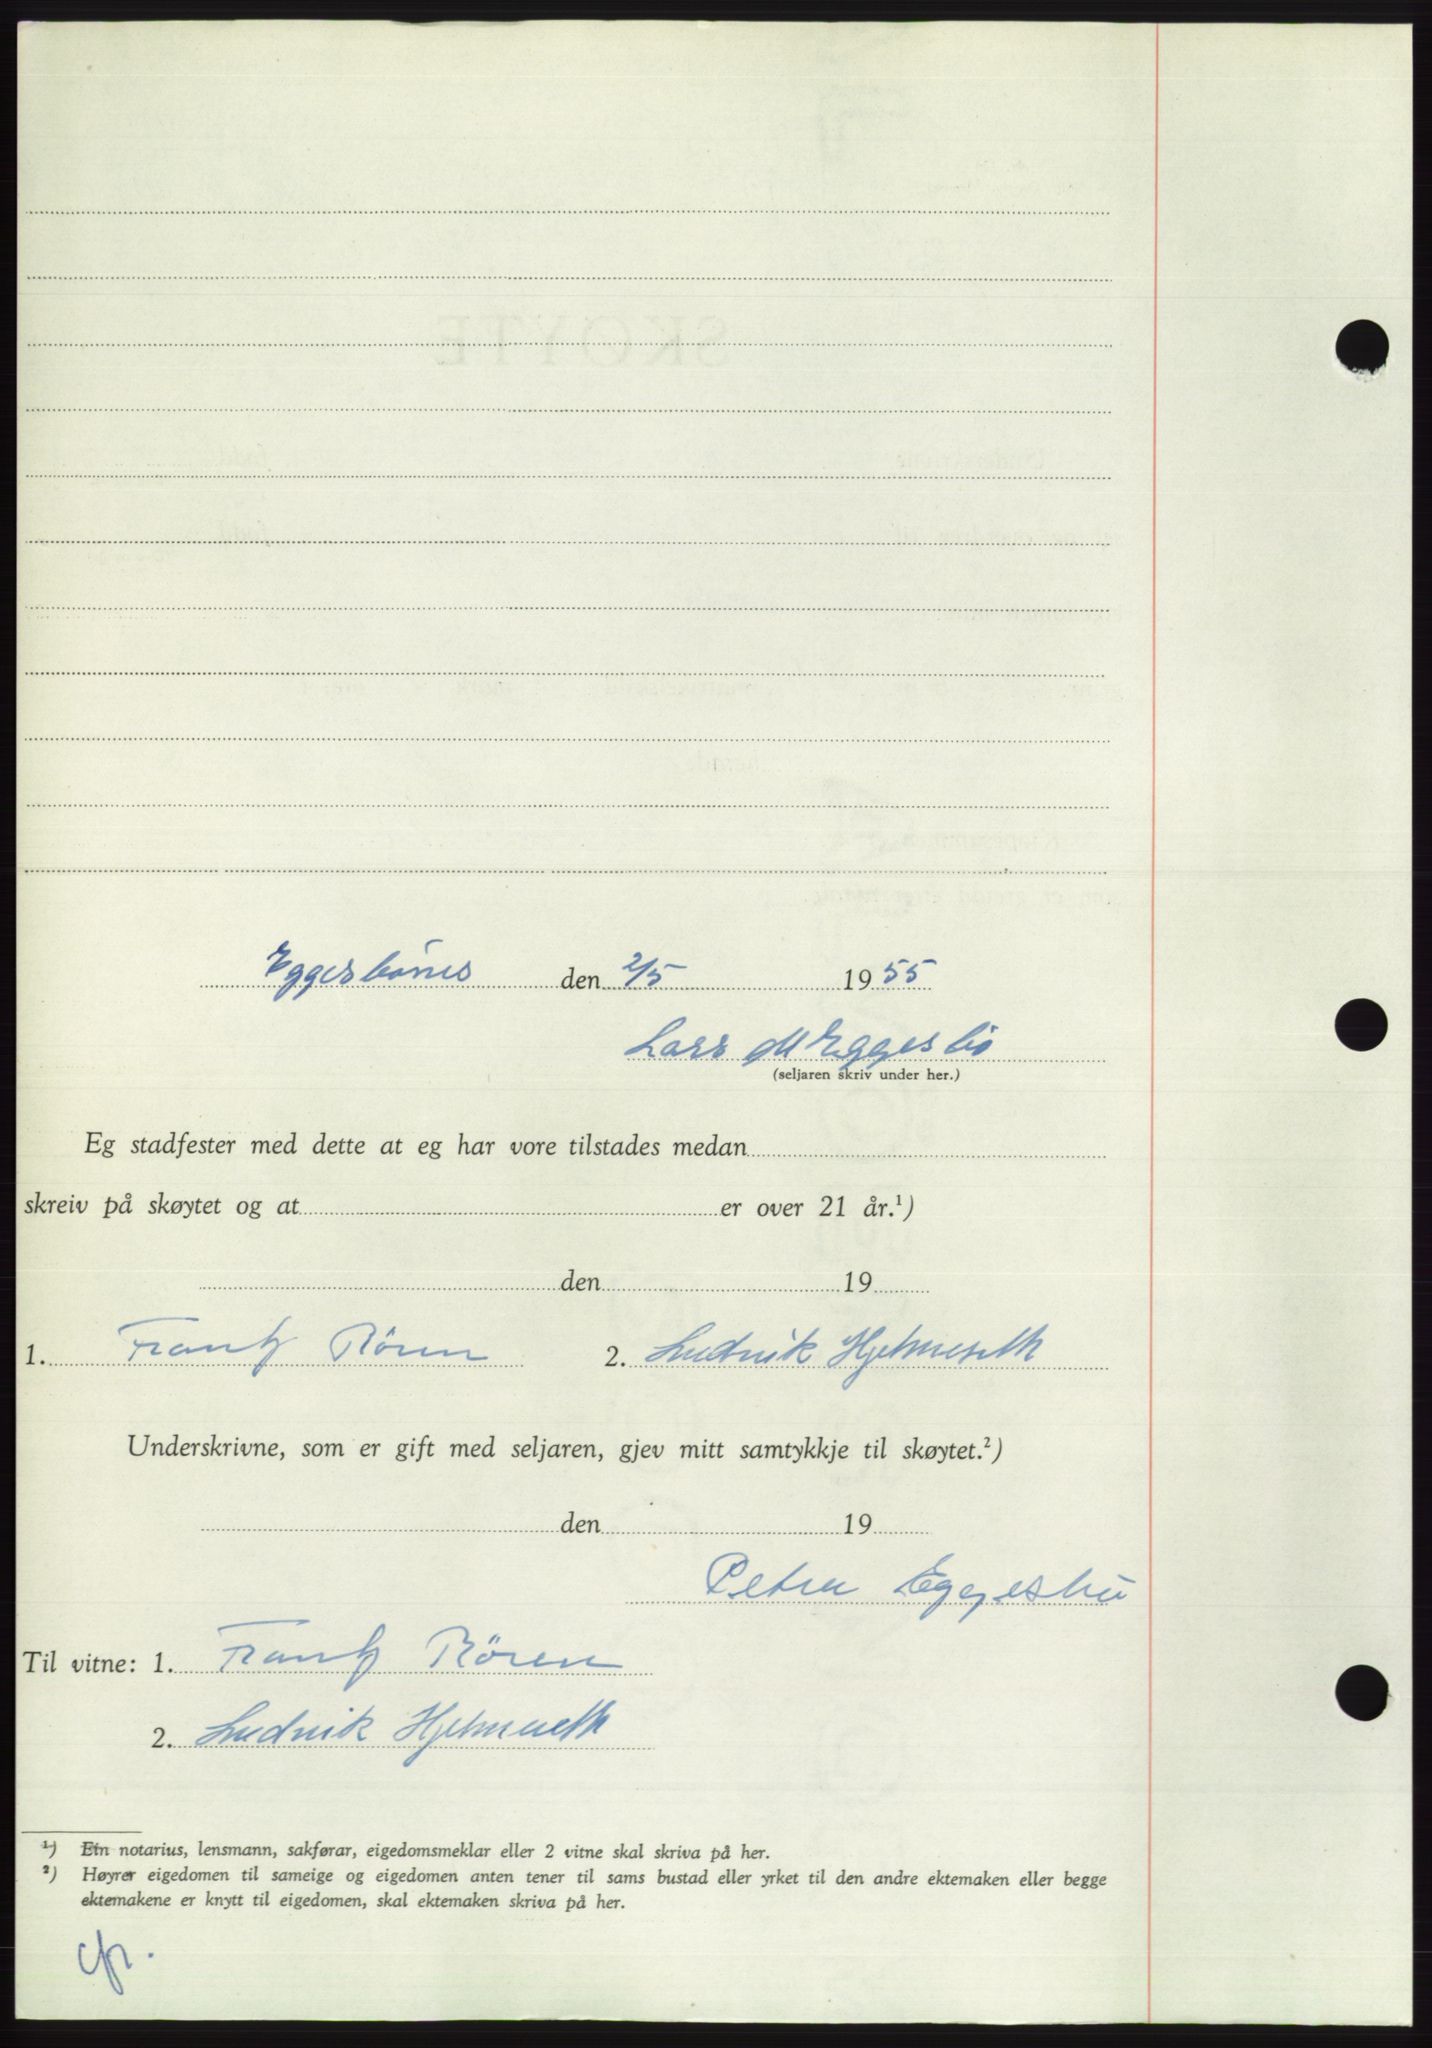 Eggesbønes den 2/5 1955
Lars M Eggesbø
(seljaren skriv under her.)
Eg stadfester med dette at eg har vore tilstades medan
skreiv på skøytet og at er over 21 år.¹)
den 19
1. Frantz Røren 2. Ludvik Hjelmeseth
Underskrivne, som er gift med seljaren, gjev mitt samtykkje til skøytet.²)
den 19
Petra Eggesbø
Til vitne: 1. Frantz Røren
2. Ludvik Hjelmeseth
¹) Ein notarius, lensmann, sakførar, eigedomsmeklar eller 2 vitne skal skriva på her.
²) Høyrer eigedomen til sameige og eigedomen anten tener til sams bustad eller yrket til den andre ektemaken eller begge
ektemakene er knytt til eigedomen, skal ektemaken skriva på her.